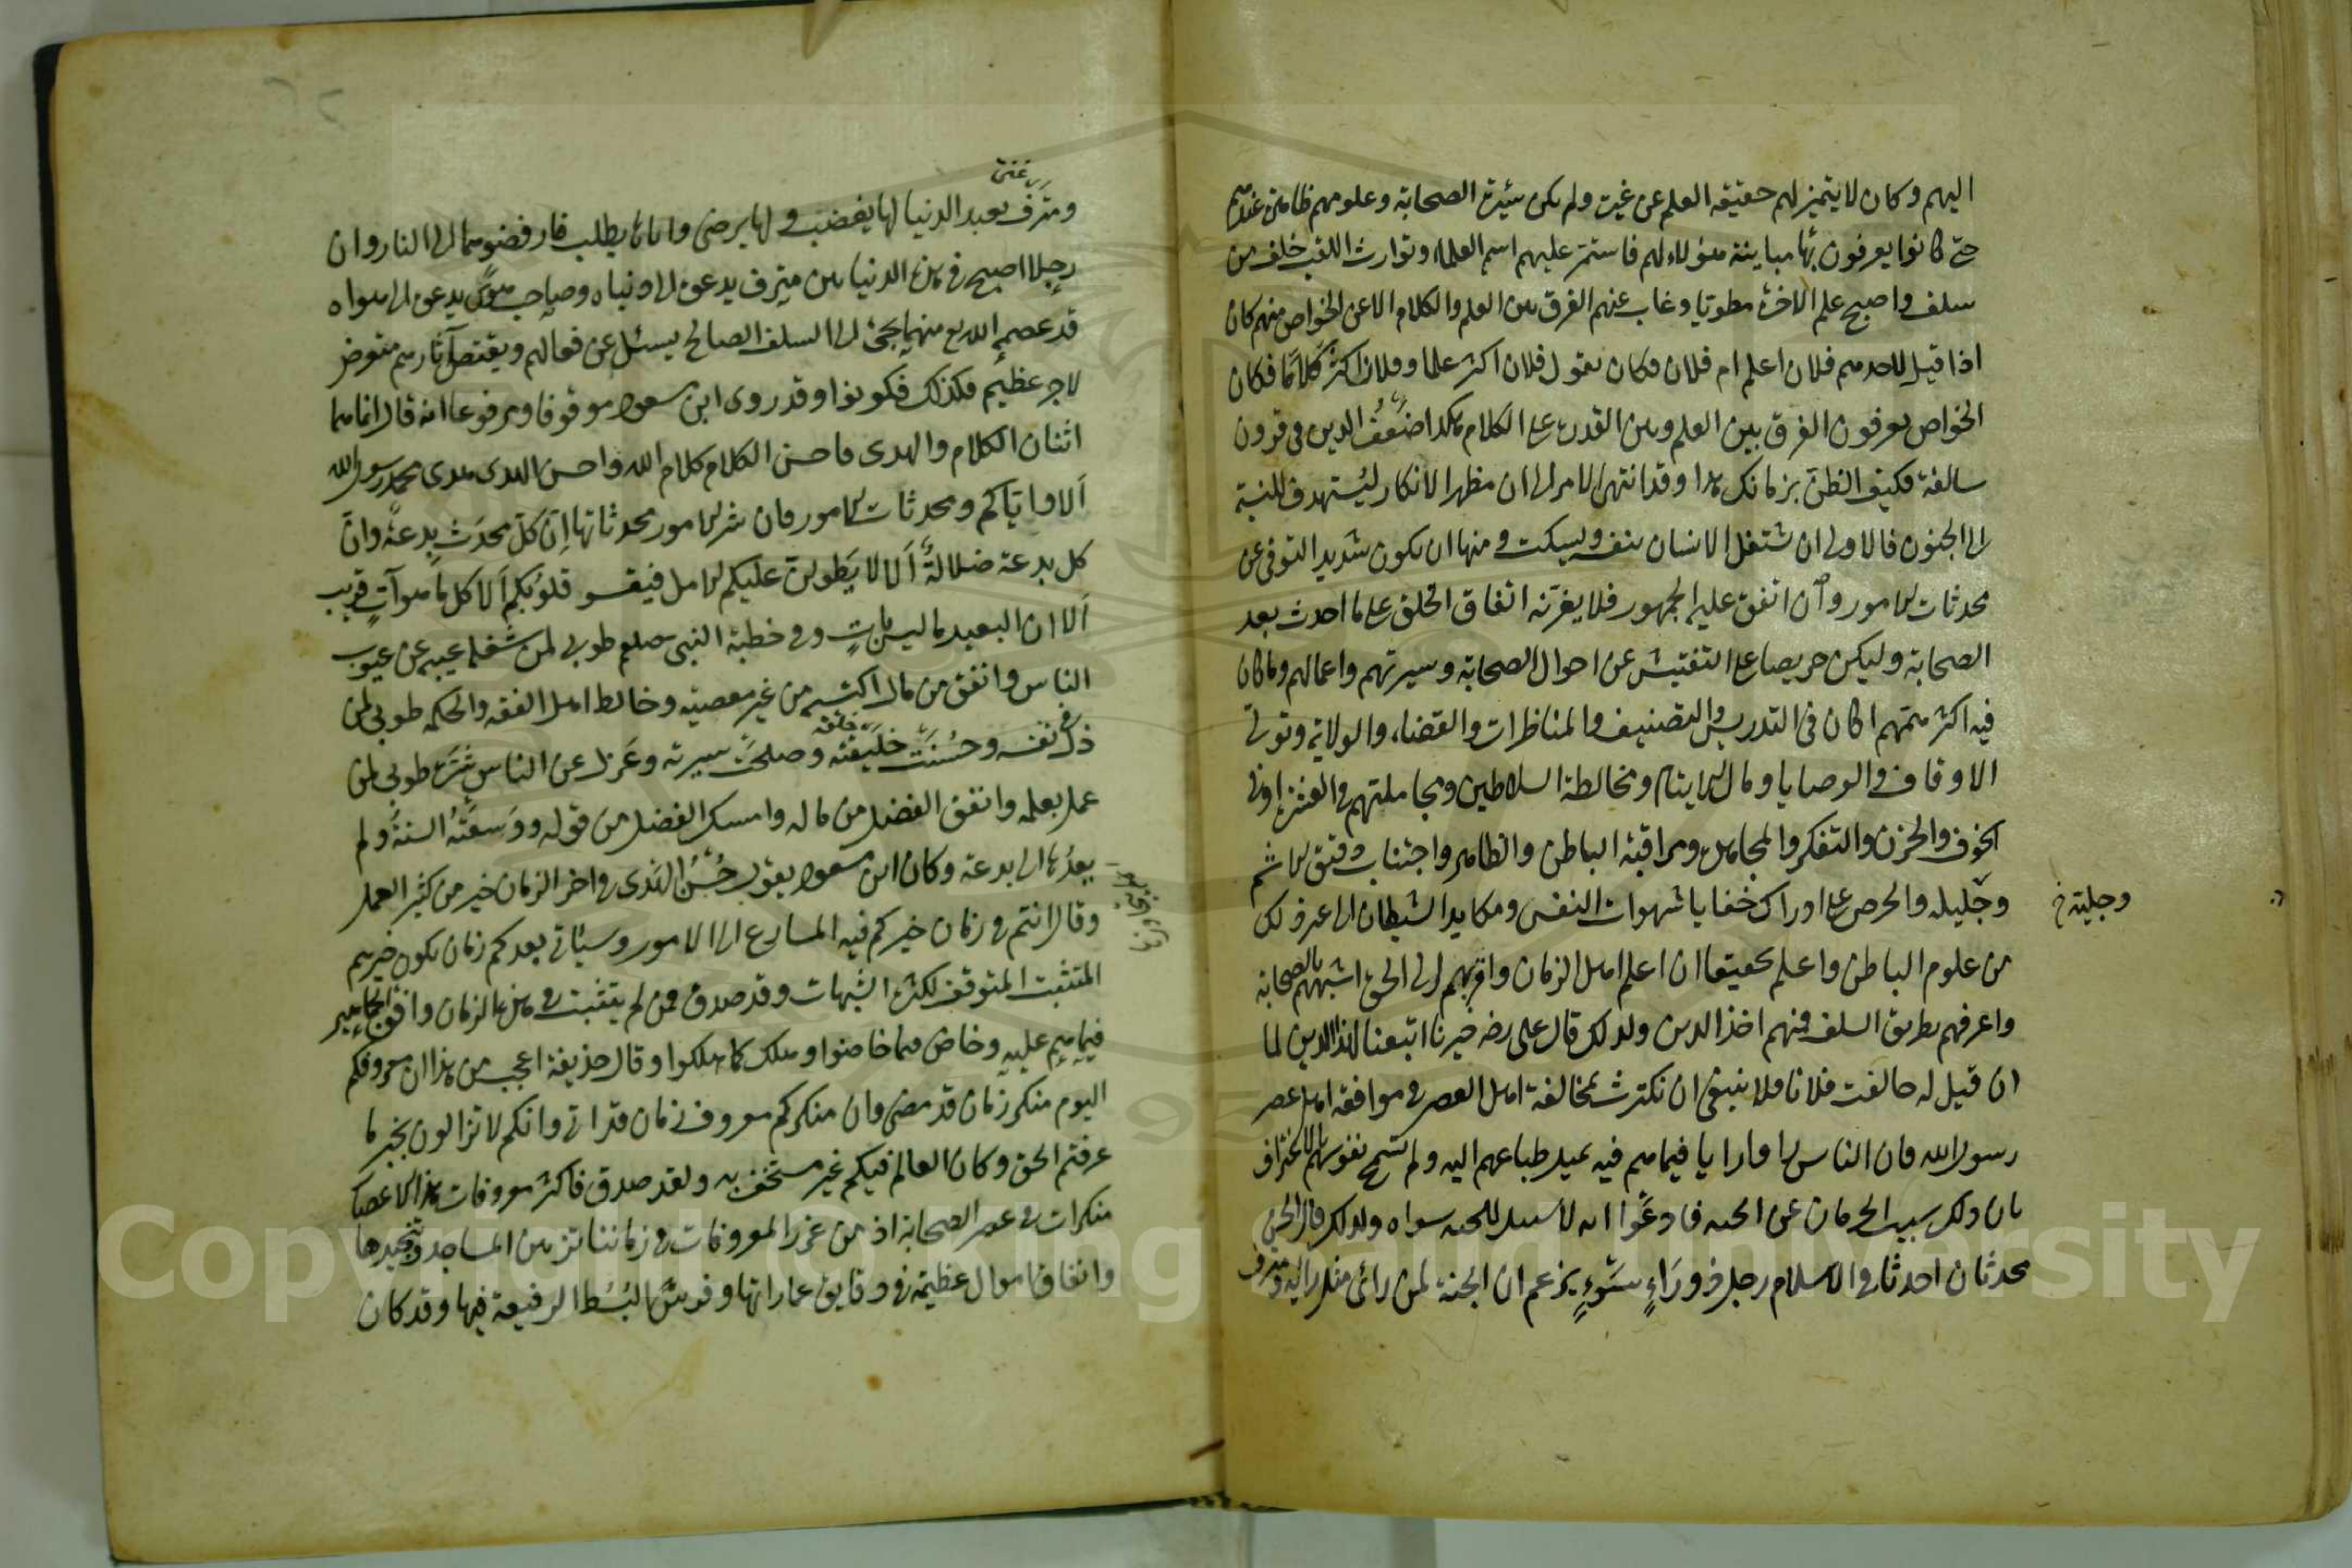 اليهم وكان لا يتميز لهم حقيقة العلم عن غيره ولم يكن سيرة الصحابة وعلومهم ظاهرة عندهم
حتى كانوا يعرفون بها مباينة هؤلاء لهم فاستمر عليهم اسم العلماء وتوارث اللقب خلف عن
سلف واصبح علم الاخرة مطويا وغاب عنهم الفرق بين العلم والكلام الا عن الخواص منهم كان
اذا قيل لاحدهم فلان اعلم ام فلان فكان يقول فلان اكثر علما وفلان اكثر كلاما فكان
الخواص يعرفون الفرق بين العلم وبين القدرة على الكلام هكذا ضعف الدين في قرون
سالفة فكيف الظن بزمانك هذا وقد انتهى الامر الى ان مظهر الانكار ليستهدف للنسبة
الى الجنون فالاولى ان يشتغل الانسان بنفسه ويسكت ومنها ان يكون شديد التوقى عن
محدثات الامور وان اتفق عليه الجمهور فلا يغرنه اتفاق الخلق على ما احدث بعد
الصحابة وليكن حريصا على التفتيش عن احوال الصحابة وسيرتهم واعمالهم وما كان
فيه اكثر همتهم اكان في التدريس والتصنيف والمناظرات والقضاء والولاية وتولى
الاوقاف والوصايا ومال الايتام ومخالطة السلاطين ومجاملتهم في العشرة او في
الخوف والحزن والتفكر والمجاهدة ومراقبة الباطن والظاهر واجتناب دقيق الاثم
وجليله والحرص على ادراك خفايا شهوات النفس ومكايد الشيطان الى غير ذلك
وجليته خ
من علوم الباطن واعلم تحقيقا ان اعلم اهل الزمان واقربهم الى الحق اشبههم بالصحابة
واعرفهم بطريق السلف فمنهم اخذ الدين ولذلك قال على رضه خيرنا اتبعنا لهذا الدين لما
ان قيل له خالفت فلانا فلا ينبغى ان تكترث بمخالفة اهل العصر في موافقة اهل عصر
رسول الله فان الناس راوا رايا فيما هم فيه لميل طباعهم اليه ولم تسمح نفوسهم بالاعتراف
بان ذلك سبب الحرمان عن الجنة فادعوا انه لا سبيل للجنة سواه ولذلك قال الحسن
محدثان احدثا في الاسلام رجل ذو راء سوء يزعم ان الجنة لمن رأى مثل رايه ومترف
ومترف يعبد الدنيا لها يغضب ولها يرضى واياها يطلب فارفضوهما الى النار وان
رجلا اصبح في هذه الدنيا بين مترف يدعوه الى دنياه وصاحب هوى يدعوه الى هواه
قد عصمه الله تع منهما يحن الى السلف الصالح يسئل عن فعالهم ويقتص آثارهم متعرض
لاجر عظيم فكذلك فكونوا وقد روى ابن مسعود موقوفا ومرفوعا انه قال انما هما
اثنان الكلام والهدى فاحسن الكلام كلام الله واحسن الهدى هدى محمد رسول الله
ألا واياكم ومحدثات الامور فان شر الامور محدثاتها ان كل محدث بدعة وان
كل بدعة ضلالة ألا لا يطولن عليكم الامل فيقسو قلوبكم ألا كل ما هو آت قريب
ألا ان البعيد ما ليس بات وفى خطبة النبى صلعم طوبى لمن شغله عيبه عن عيوب
الناس وانفق من مال اكتسبه من غير معصية وخالط اهل الفقه والحكمة طوبى لمن
ذل في نفسه وحسنت خليقته وصلحت سيرته وعزل عن الناس شره طوبى لمن
عمل بعلمه وانفق الفضل من ماله وامسك الفضل من قوله ووسعته السنة ولم
يعدها الى بدعة وكان ابن مسعود يقول حسن الهدى في اخر الزمان خير من كثير العمل
وقال انتم في زمان خيركم فيه المسارع الى الامور وسيأتى بعدكم زمان يكون خيرهم
المتثبت المتوقف لكثرة الشبهات وقد صدق فمن لم يتثبت في هذا الزمان وافق الجماهير
فيما هم عليه وخاض فيما خاضوا وهلك كما هلكوا وقال حذيفة اعجب من هذا ان معروفكم
اليوم منكر زمان قد مضى وان منكركم معروف زمان قد اتى وانكم لا تزالون بخير ما
عرفتم الحق وكان العالم فيكم غير مستخف به ولقد صدق فاكثر معروفات هذا الاعصار
منكرات في عصر الصحابة اذ من غرر المعروفات في زماننا تزيين المساجد وتنجيدها
وانفاق اموال عظيمة في دقايق عماراتها وفرش البسط الرفيعة فيها وقد كان
Copyright © King Saud University